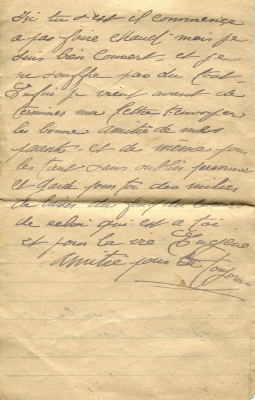 Ici tu s est il commence
a pas faire chaud mais je
suis bien couvert et je
ne souffre pas du tout
Enfin je vient avant de
termines ma lettre t envoyer
les bonne amitié de mes
parents et de même pour
les tant sans oublier personne
et garde pour toi des milier
de baiser du
de celui qui est a toi
et pour la vie Eugène
amitié pour toujours